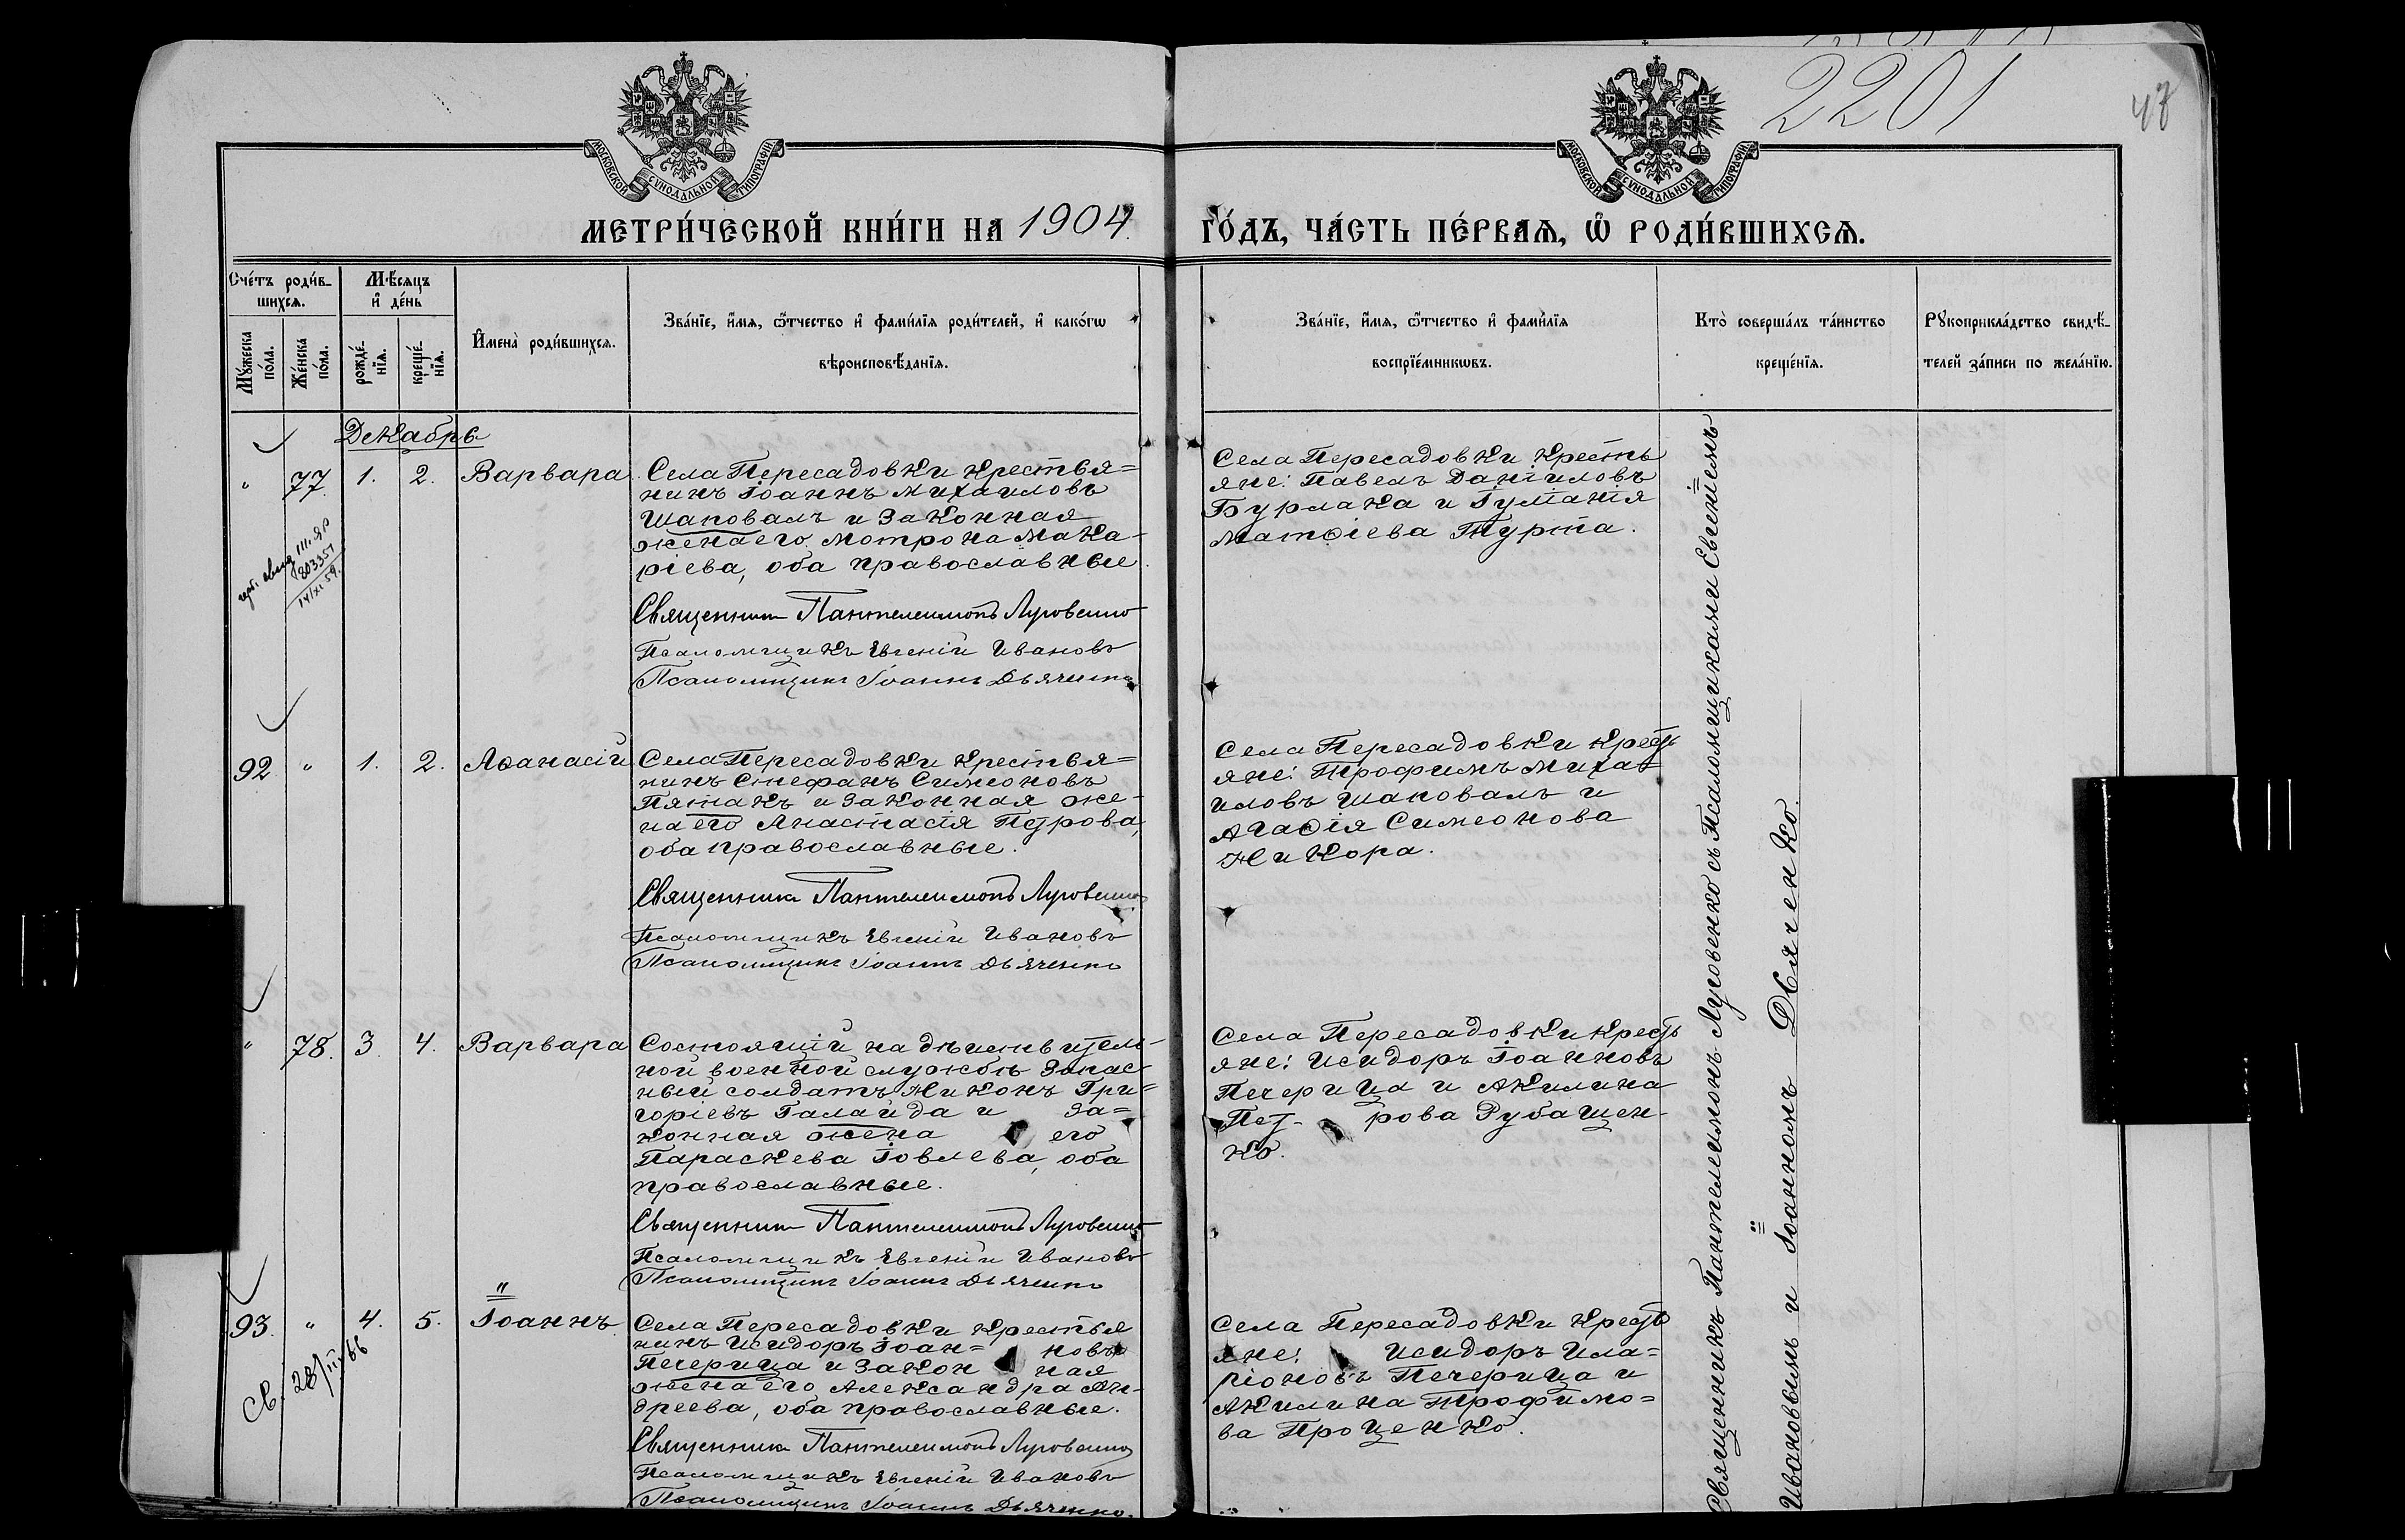 2201
47
МОСКОВСКОЙ СѴНОДАЛЬНОЙ ТИПОГРАФІИ
МОСКОВСКОЙ СѴНОДАЛЬНОЙ ТИПОГРАФІИ
МЕТРИ́ЧЕСКОЙ КНИ́ГИ НА 1904.
ГО́ДЪ, ЧА́СТЬ ПЕ́РВАѦ, Ѿ РОДИ́ВШИХСѦ.
Сче́тъ роди́в-
шихсѧ.
Мꙋ́жеска
по́ла.
Же́нска
по́ла.
Мѣ́сѧцъ
и҆ де́нь
рожде́-
нїѧ.
креще́-
нїѧ.
И҆мена̀ роди́вшихсѧ.
Зва́нїе, и҆́мѧ, ѻ҆́тчество и҆ фами́лїѧ роди́телей, и҆ како́гѡ
вѣроисповѣ́данїѧ.
Зва́нїе, и҆́мѧ, ѻ҆́тчество и҆ фами́лїѧ
воспрїе́мникѡвъ.
Кто̀ соверша́лъ та́инство
креще́нїѧ.
Рꙋкоприкла́дство свидѣ́-
телей за́писи по жела́нїю.
Декабрь
" 77. 1. 2. Варвара
Села Пересадовки крестья=
нинъ Іоаннъ Михаиловъ
Шаповалъ и законная
жена его Мотрона Мака-
ріева, оба православные.
Священникъ Пантелеимонъ Луговенко
Псаломщикъ Евгеній Ивановъ
Псаломщикъ Іоаннъ Дьяченко
Села Пересадовки кресть
яне: Павелъ Даніиловъ
Бурлака и Гуліанія
Матѳіева Турта.
803351
14/XI.59.
92 " 1. 2. Аѳанасій
Села Пересадовки крестья=
нинъ Стефанъ Симеоновъ
Пятакъ и законная же-
на его Анастасія Петрова,
оба православные.
Священникъ Пантелеимонъ Луговенко
Псаломщикъ Евгеній Ивановъ
Псаломщикъ Іоаннъ Дьяченко
Села Пересадовки кресть
яне: Трофимъ Миха=
иловъ Шаповалъ и
Агафія Симеонова
Никора.
" 78. 3. 4. Варвара
Состоящій на дѣйствитель-
ной военной службѣ запас-
ный солдатъ Никонъ Гри=
горіевъ Галайда и за=
конная жена его
Параскева Іовлева, оба
православные.
Священникъ Пантелеимонъ Луговенко
Псаломщикъ Евгеній Ивановъ
Псаломщикъ Іоаннъ Дьяченко
Села Пересадовки кресть
яне: Исидоръ Іоанновъ
Печерица и Акилина
Пет- рова Рубащен-
ко.
93. " 4. 5. Іоаннъ
Села Пересадовки крестья
нинъ Исидоръ Іоан= новъ
Печерица и закон ная
жена его Александра Ан-
дреева, оба православные.
Священникъ Пантелеимонъ Луговенко
Псаломщикъ Евгеній Ивановъ
Псаломщикъ Іоаннъ Дьяченко.
Села Пересадовки кресть
яне: Исидоръ Ила=
ріоновъ Печерица и
Акилина Трофимо=
ва Проценко.
Св. 28/III 66
Священникъ Пантелеимонъ Луговенко съ Псаломщиками Евгеніемъ
Ивановымъ и Іоанномъ Дьяченко.